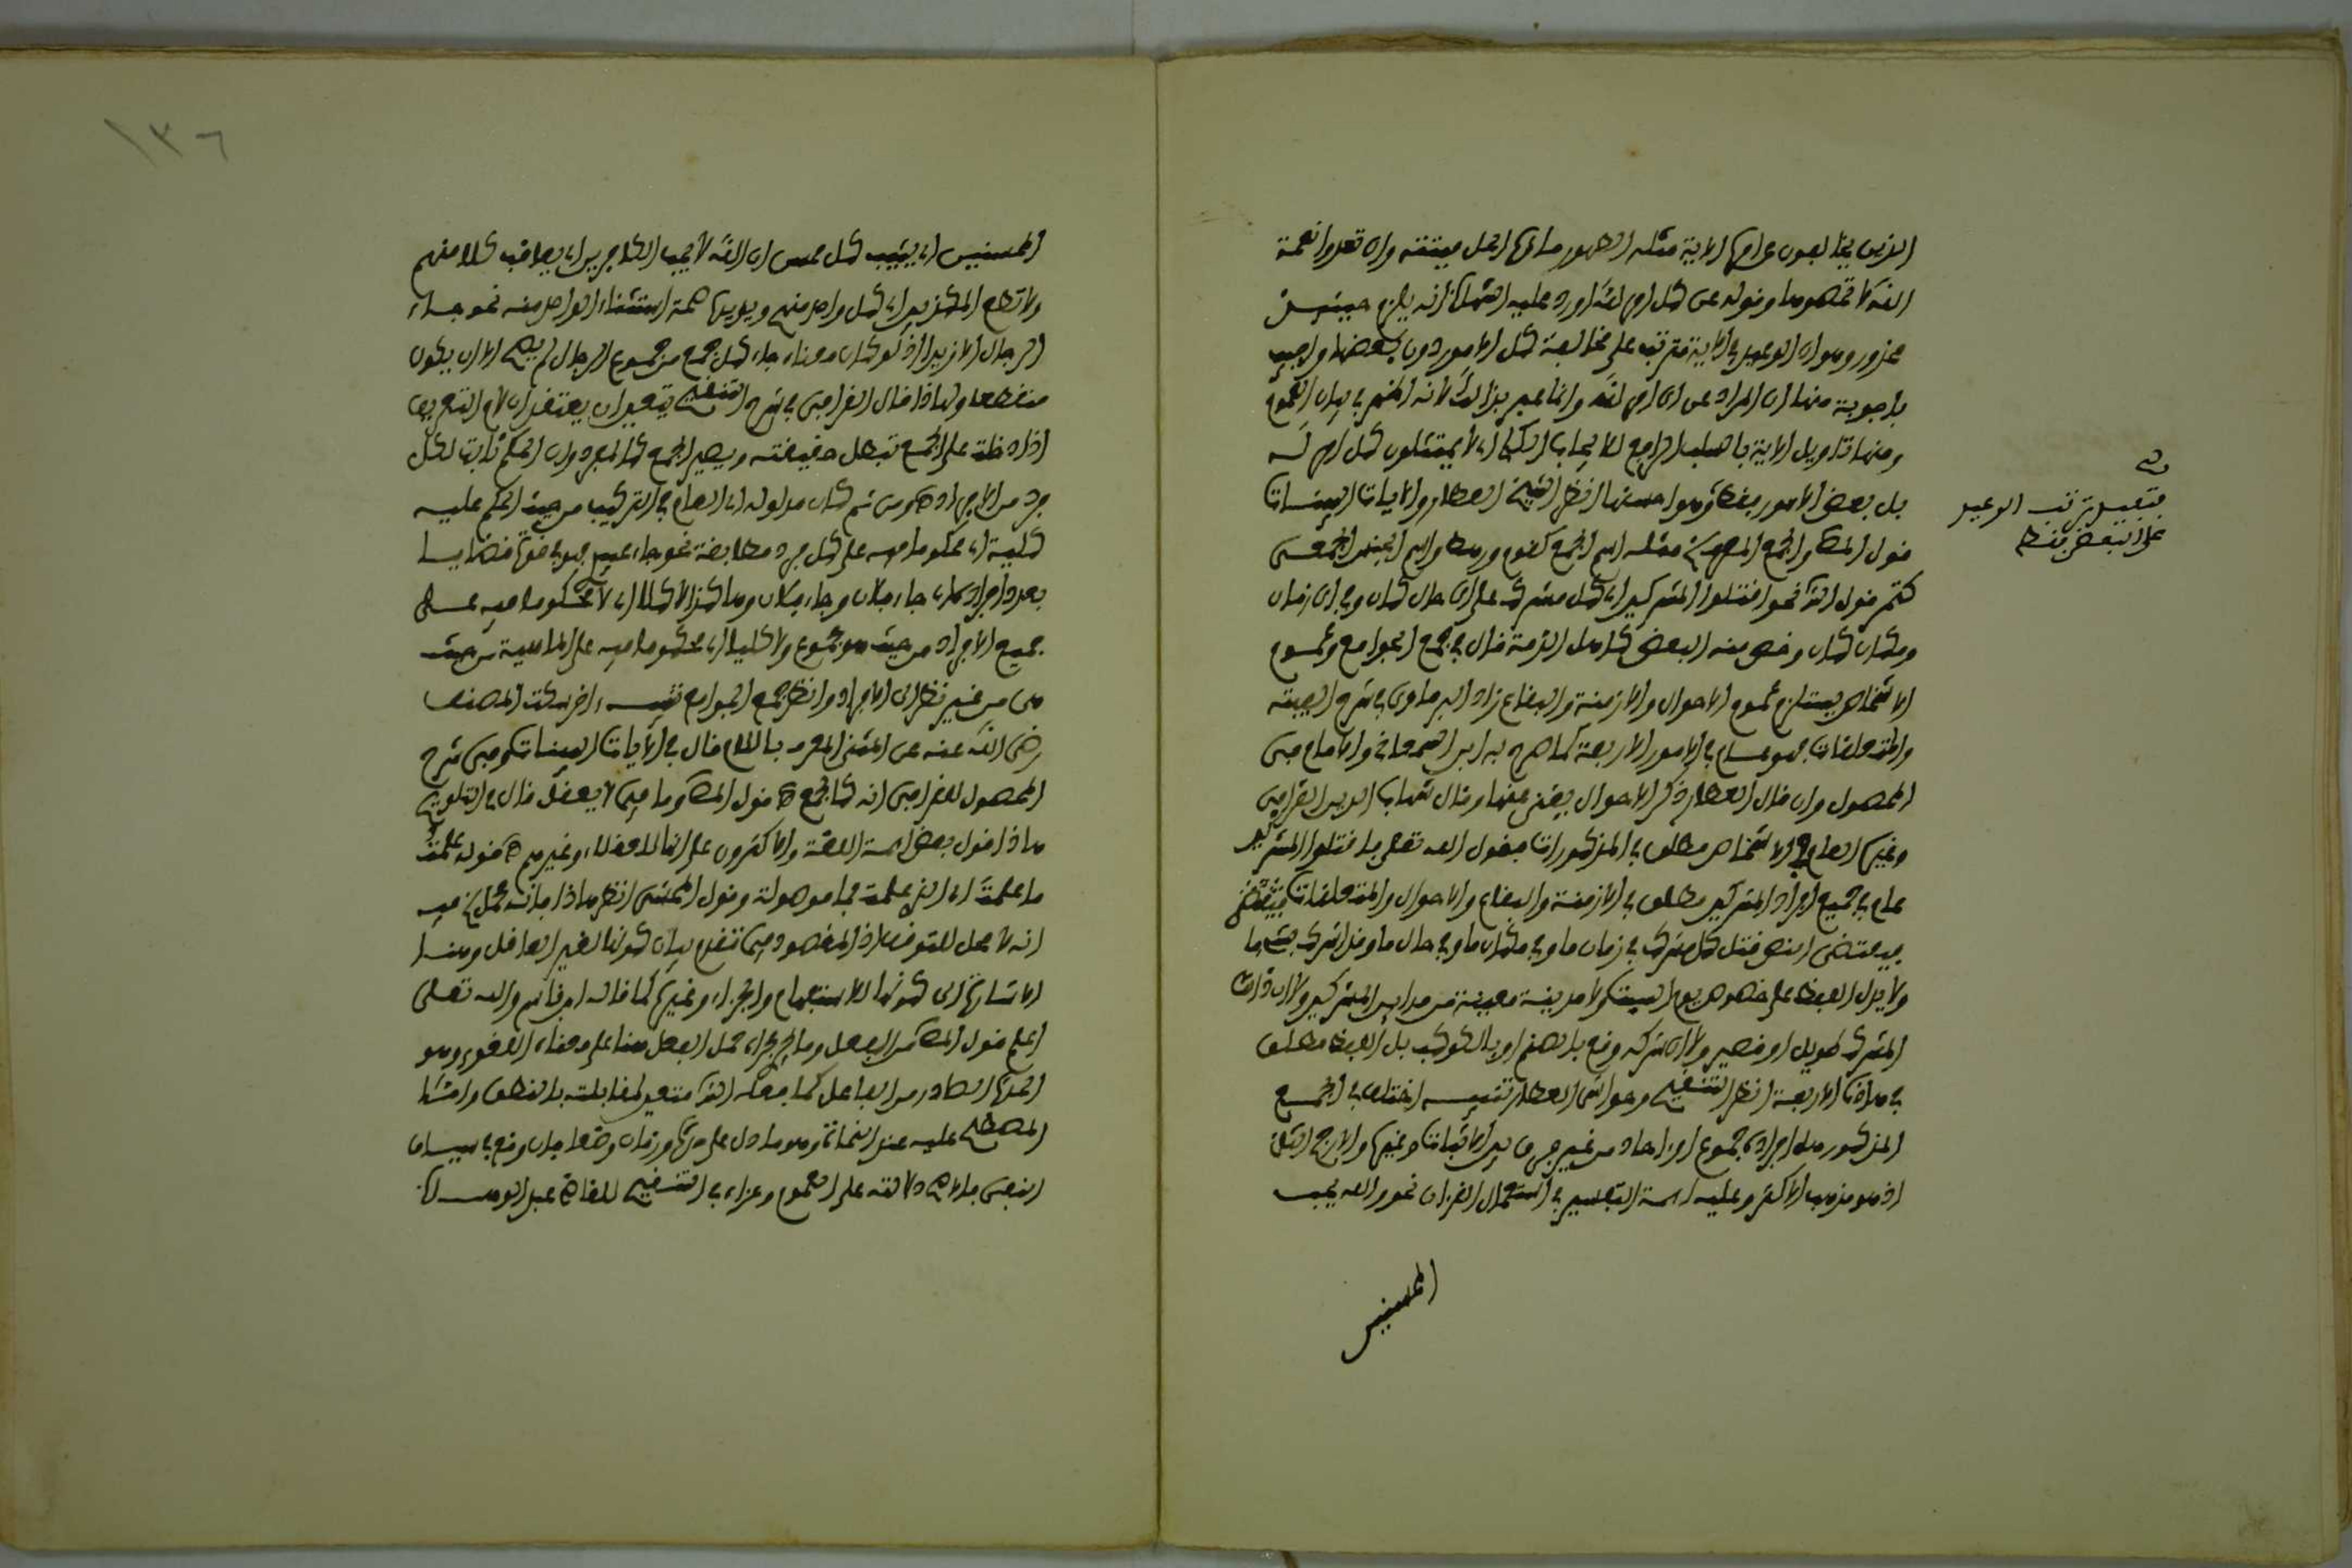 الذين يخالفون عن امره الاية مثله الطهور ماؤه الحل ميتته وان تعدوا نعمة
الله لا تحصوها وقوله عن كل امر لله اورد عليه الشهاب انه يلزم حينئذ
محذور وهو ان الوعيد في الاية مترتب على مخالفة كل الامور دون بعضها واجيب
باجوبة منها ان المراد عن اي امر لله وانما عبر بذالك لانه اظهر في بيان العموم
ومنها تاويل الاية بالسلب الراجع للايجاب الكلي اي لا يمتثلون كل امر له
بل بعض الامور فقط وهو احسنها انظر الشيخ العطار والايات البينات
قول المص والجمع المعرف مثله اسم الجمع كقوم ورهط واسم الجنس الجمعي
كتمر قول الش نحو اقتلوا المشركين اي كل مشرك على اي حال كان وفي اي زمان
ومكان كان وخص منه البعض كاهل الذمة قال في جمع الجوامع وعموم
الاشخاص يستلزم عموم الاحوال والازمنة والبقاع زاد البرماوي في شرح الفيته
والمتعلقات فهو عام في الامور الاربعة كما صرح به ابن السمعاني والامام في
المحصول وان قال العطار ذكر الاحوال يغني عنها وقال شهاب الدين القرافي
وغيره العام في الاشخاص مطلق في المذكورات فقول الله تعلى فاقتلوا المشركين
عام في جميع افراد المشركين مطلق في الازمنة والبقاع والاحوال والمتعلقات
فيقتضي النص قتل كل مشرك في زمان ما وفي مكان ما وفي حال ما وقد اشرك بشيء ما
ولا يدل اللفظ على خصوص يوم السبت ولا مدينة معينة من مداين المشركين ولا ان ذالك
المشرك طويل او قصير ولا ان شركه وقع بالصنم او بالكوكب بل اللفظ مطلق
في هاذه الاربعة انظر التنقيح وحواشي العطار تنبيه اختلف في الجمع
المذكور هل افراده جموع او احاد من غير فرق بين الاثبات وغيره والارجح الثاني
اذ هو مذهب الاكثر وعليه ايمة التفسير في استعمال القرءان نحو والله يحب
المحسنين
قف
تقييد ترتب الوعيد
على البعض فقط
١٣٦
المحسنين اي يثيب كل محسن ان الله لا يحب الكافرين اي يعاقب كلا منهم
ولا تطع المكذبين اي كل واحد منهم ويؤيده صحة استثناء الواحد منه نحو جاء
الرجال الا زيدا اذ لو كان معناه جاء كل جمع من جموع الرجال لم يصح الا ان يكون
منقطعا ولهاذا قال القرافي في شرح التنقيح يتعين ان يعتقد ان لام التعريف
اذا دخلت على الجمع تبطل حقيقته ويصير الجمع كالمفرد وان الحكم ثابت لكل
فرد من الافراد ه ومن ثم كان مدلوله اي العام في التركيب من حيث الحكم عليه
كلية اي محكوما فيه على كل فرد مطابقة نحو جاء عبيدي فهو في قوة قضايا
بعدد افراده اي جاء فلان وجاء فلان وهاكذا لا كلا اي لا محكوما فيه على
جميع الافراد من حيث هو مجموع ولا كليا اي محكوما فيه على الماهية من حيث
هي من غير نظر الى الافراد وانظر جمع الجوامع تنبيه اخر سكت المصنف
رضي الله عنه عن المثنى المعرف باللام قال في الآيات البينات وفي شرح
المحصول للقرافي انه كالجمع ه قول المص وما في ما لا يعقل قال في التلويح
هاذا قول بعض ايمة اللغة والاكثرون على انها للعقلاء وغيرهم ه قوله علمت
ما علمت اي الذي علمت فما موصولة وقول المحشي انظر هاذا فانه محمل فيه
انه لا محل للتوقف اذ المقصود فيما تقدم بيان كونها لغير العاقل وهنا
الاشارة الى كونها للاستفهام والجزاء وغيره كما قاله ابن قاسم والله تعلى
اعلم قول المص من الفعل وما جرى مجراه حمل الفعل هنا على معناه اللغوي وهو
الحدث الصادر من الفاعل كما فعله الش متعين لمقابلته بالنطق واما
المصطلح عليه عند النحاة وهو ما دل على حدث وزمان وضعا فان وقع في سياق
النفي فالاصح دلالته على العموم وعزاه في التنقيح للقاضي عبد الوهاب